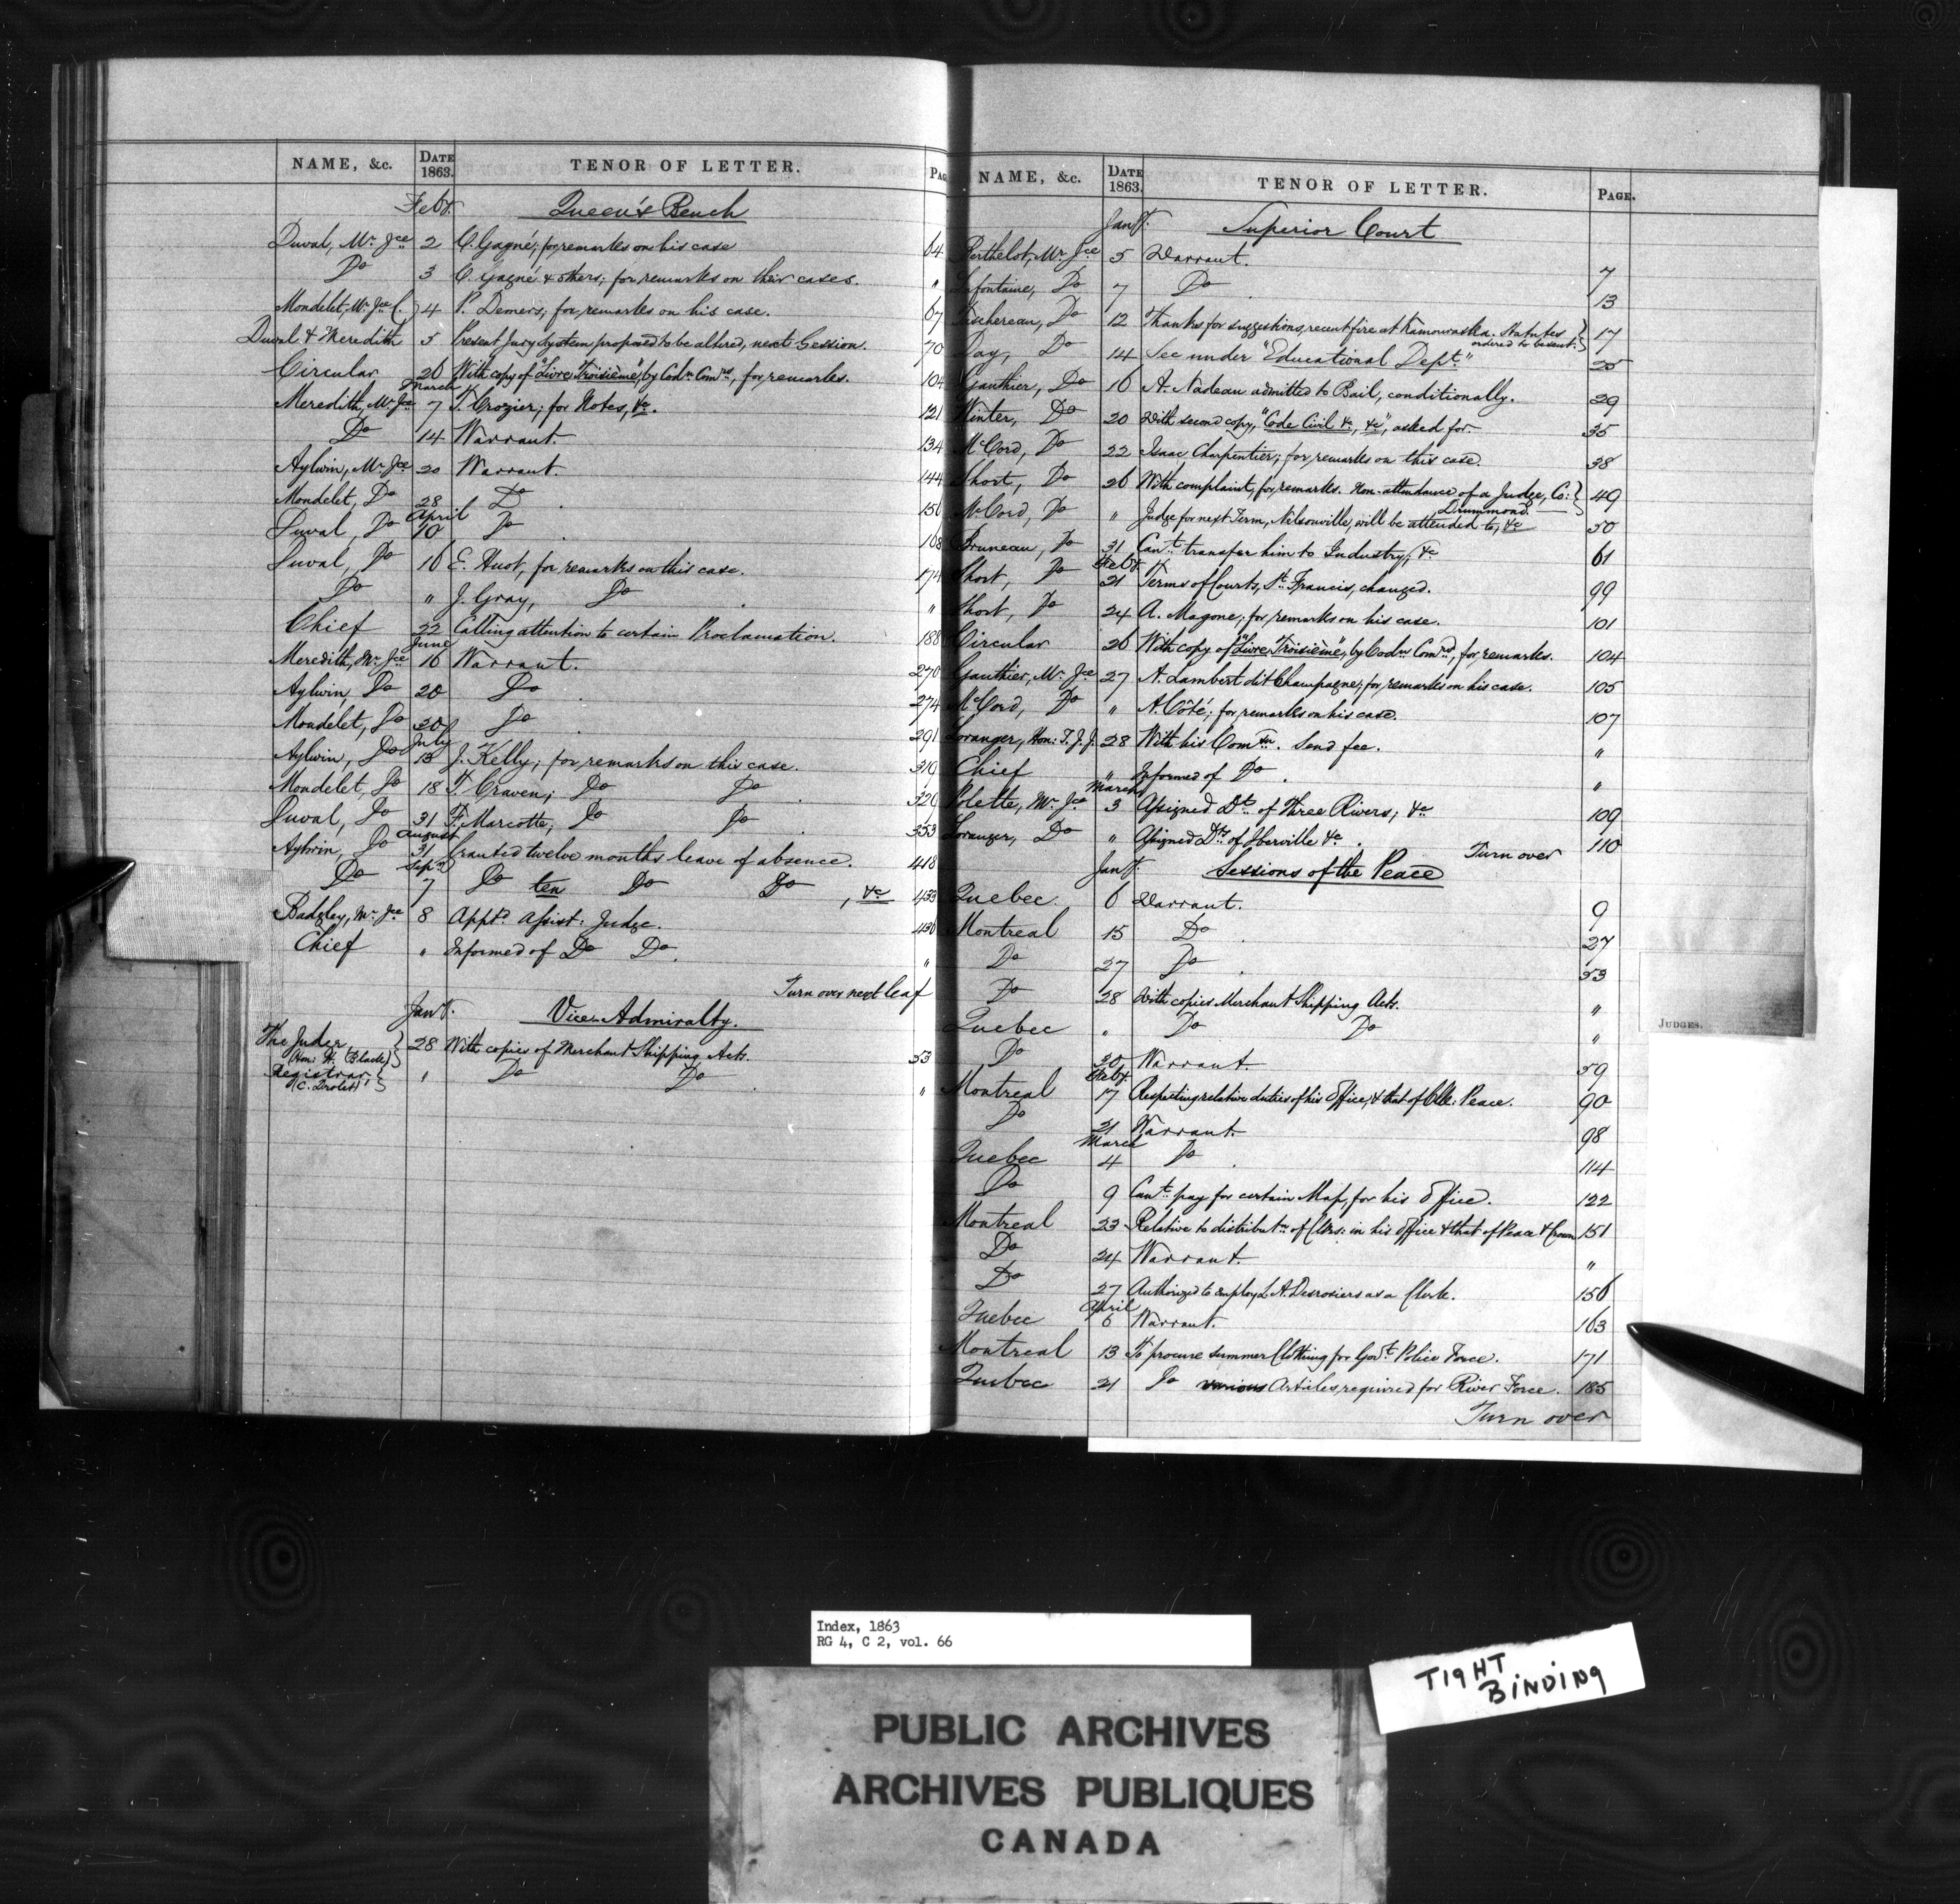 NAME, &c. DATE 1863. TENOR OF LETTER. PAG
Feby. Queen's Bench
Duval, Mr. Jce 2 C. Gagné; for remarks on his case 64
Do 3 C. Gagné & others; for remarks on their cases. "
Mondelet, Mr. Jce C. 4 P. Demers; for remarks on his case. 67
Duval & Meredith 5 Present Jury System proposed to be altered, next Session. 70
Circular 26 With copy of "Livre Troisième", by Codn. Comrs, for remarks. 104
March
Meredith, Mr. Jce 7 T. Crozier; for Notes, &c. 121
Do 14 Warrant. 134
Aylwin, Mr. Jce 20 Warrant. 144
Mondelet, Do 28 Do. 156
April
Duval, Do 10 Do. 168
Duval, Do 16 E. Huot, for remarks on this case. 174
Do " J. Gray, Do. "
Chief 22 Calling attention to certain Proclamation. 188
June
Meredith, Mr. Jce 16 Warrant. 270
Aylwin, Do 20 Do. 274
Mondelet, Do 30 Do. 291
July
Aylwin, Do 13 J. Kelly; for remarks on this case. 319
Mondelet, Do 18 T. Craven; Do Do. 326
Duval, Do 31 F. Marcotte; Do Do. 353
August
Aylwin, Do 31 Granted twelve months leave of absence. 418
Sepr.
Do 7 Do ten Do Do, &c 433
Badgley, Mr. Jce 8 Apptd. Assist: Judge. 436
Chief " Informed of Do Do. "
Turn over next leaf
Jany. Vice-Admiralty.
The Judge (Hon: H. Black) 28 With copies of Merchant Shipping Acts. 53
Registrar (C. Drolet) " Do Do. "
NAME, &c. DATE 1863. TENOR OF LETTER. PAGE.
Jany. Superior Court
Berthelot, Mr. Jce 5 Warrant. 7
Lafontaine, Do 7 Do. 13
Taschereau, Do 12 Thanks for suggestions, recent fire at Kamouraska. Statutes ordered to be sent. 17
Day, Do 14 See under "Educational Dept." 25
Gauthier, Do 16 A. Nadeau admitted to Bail, conditionally. 29
Winter, Do 20 With second copy, "Code Civil &c, &c", asked for. 35
McCord, Do 22 Isaac Charpentier; for remarks on this case. 38
Short, Do 26 With complaint, for remarks. Non-attendance of a Judge, Co: Drummond. 49
McCord, Do " Judge for next Term, Nelsonville, will be attended to, &c 50
Bruneau, Do 31 Can't transfer him to Industry, &c 61
Feby.
Short, Do 21 Terms of Courts, St. Francis, changed. 99
Short, Do 24 A. Magone; for remarks on his case. 101
Circular 26 With copy of "Livre Troisième", by Codn Comrs, for remarks. 104
Gauthier, Mr. Jce 27 A. Lambert dit Champagne; for remarks on his case. 105
McCord, Do " A. Côté; for remarks on his case. 107
Loranger, Hon: T. J. J. 28 With his Comsn. Send fee. "
Chief " Informed of Do. "
March
Polette, Mr. Jce 3 Assigned Dt. of Three Rivers; &c 109
Loranger, Do " Assigned Dt. of Iberville &c. 110
Turn over
Jany. Sessions of the Peace
Quebec. 6 Warrant. 9
Montreal 15 Do. 27
Do 27 Do. 53
Do 28 With copies Merchant Shipping Acts. "
Quebec " Do Do "
Do 30 Warrant. 59
Feby.
Montreal 17 Respecting relative duties of his Office, & that of Clk: Peace. 90
Do 21 Warrant. 98
March
Quebec 4 Do. 114
Do 9 Can't pay for certain Map, for his Office. 122
Montreal 23 Relative to distributn. of Clks: in his Office & that of Peace & Crown 151
Do 24 Warrant. "
Do 27 Authorized to employ L. A. Desrosiers as a Clerk. 156
April
Quebec 6 Warrant. 163
Montreal 13 To procure summer Clothing for Govt. Police Force. 171
Quebec 21 Do various Articles required for River Force. 185
Turn over
JUDGES.
Index, 1863
RG 4, C 2, vol. 66
TIGHT
BINDING
PUBLIC ARCHIVES
ARCHIVES PUBLIQUES
CANADA